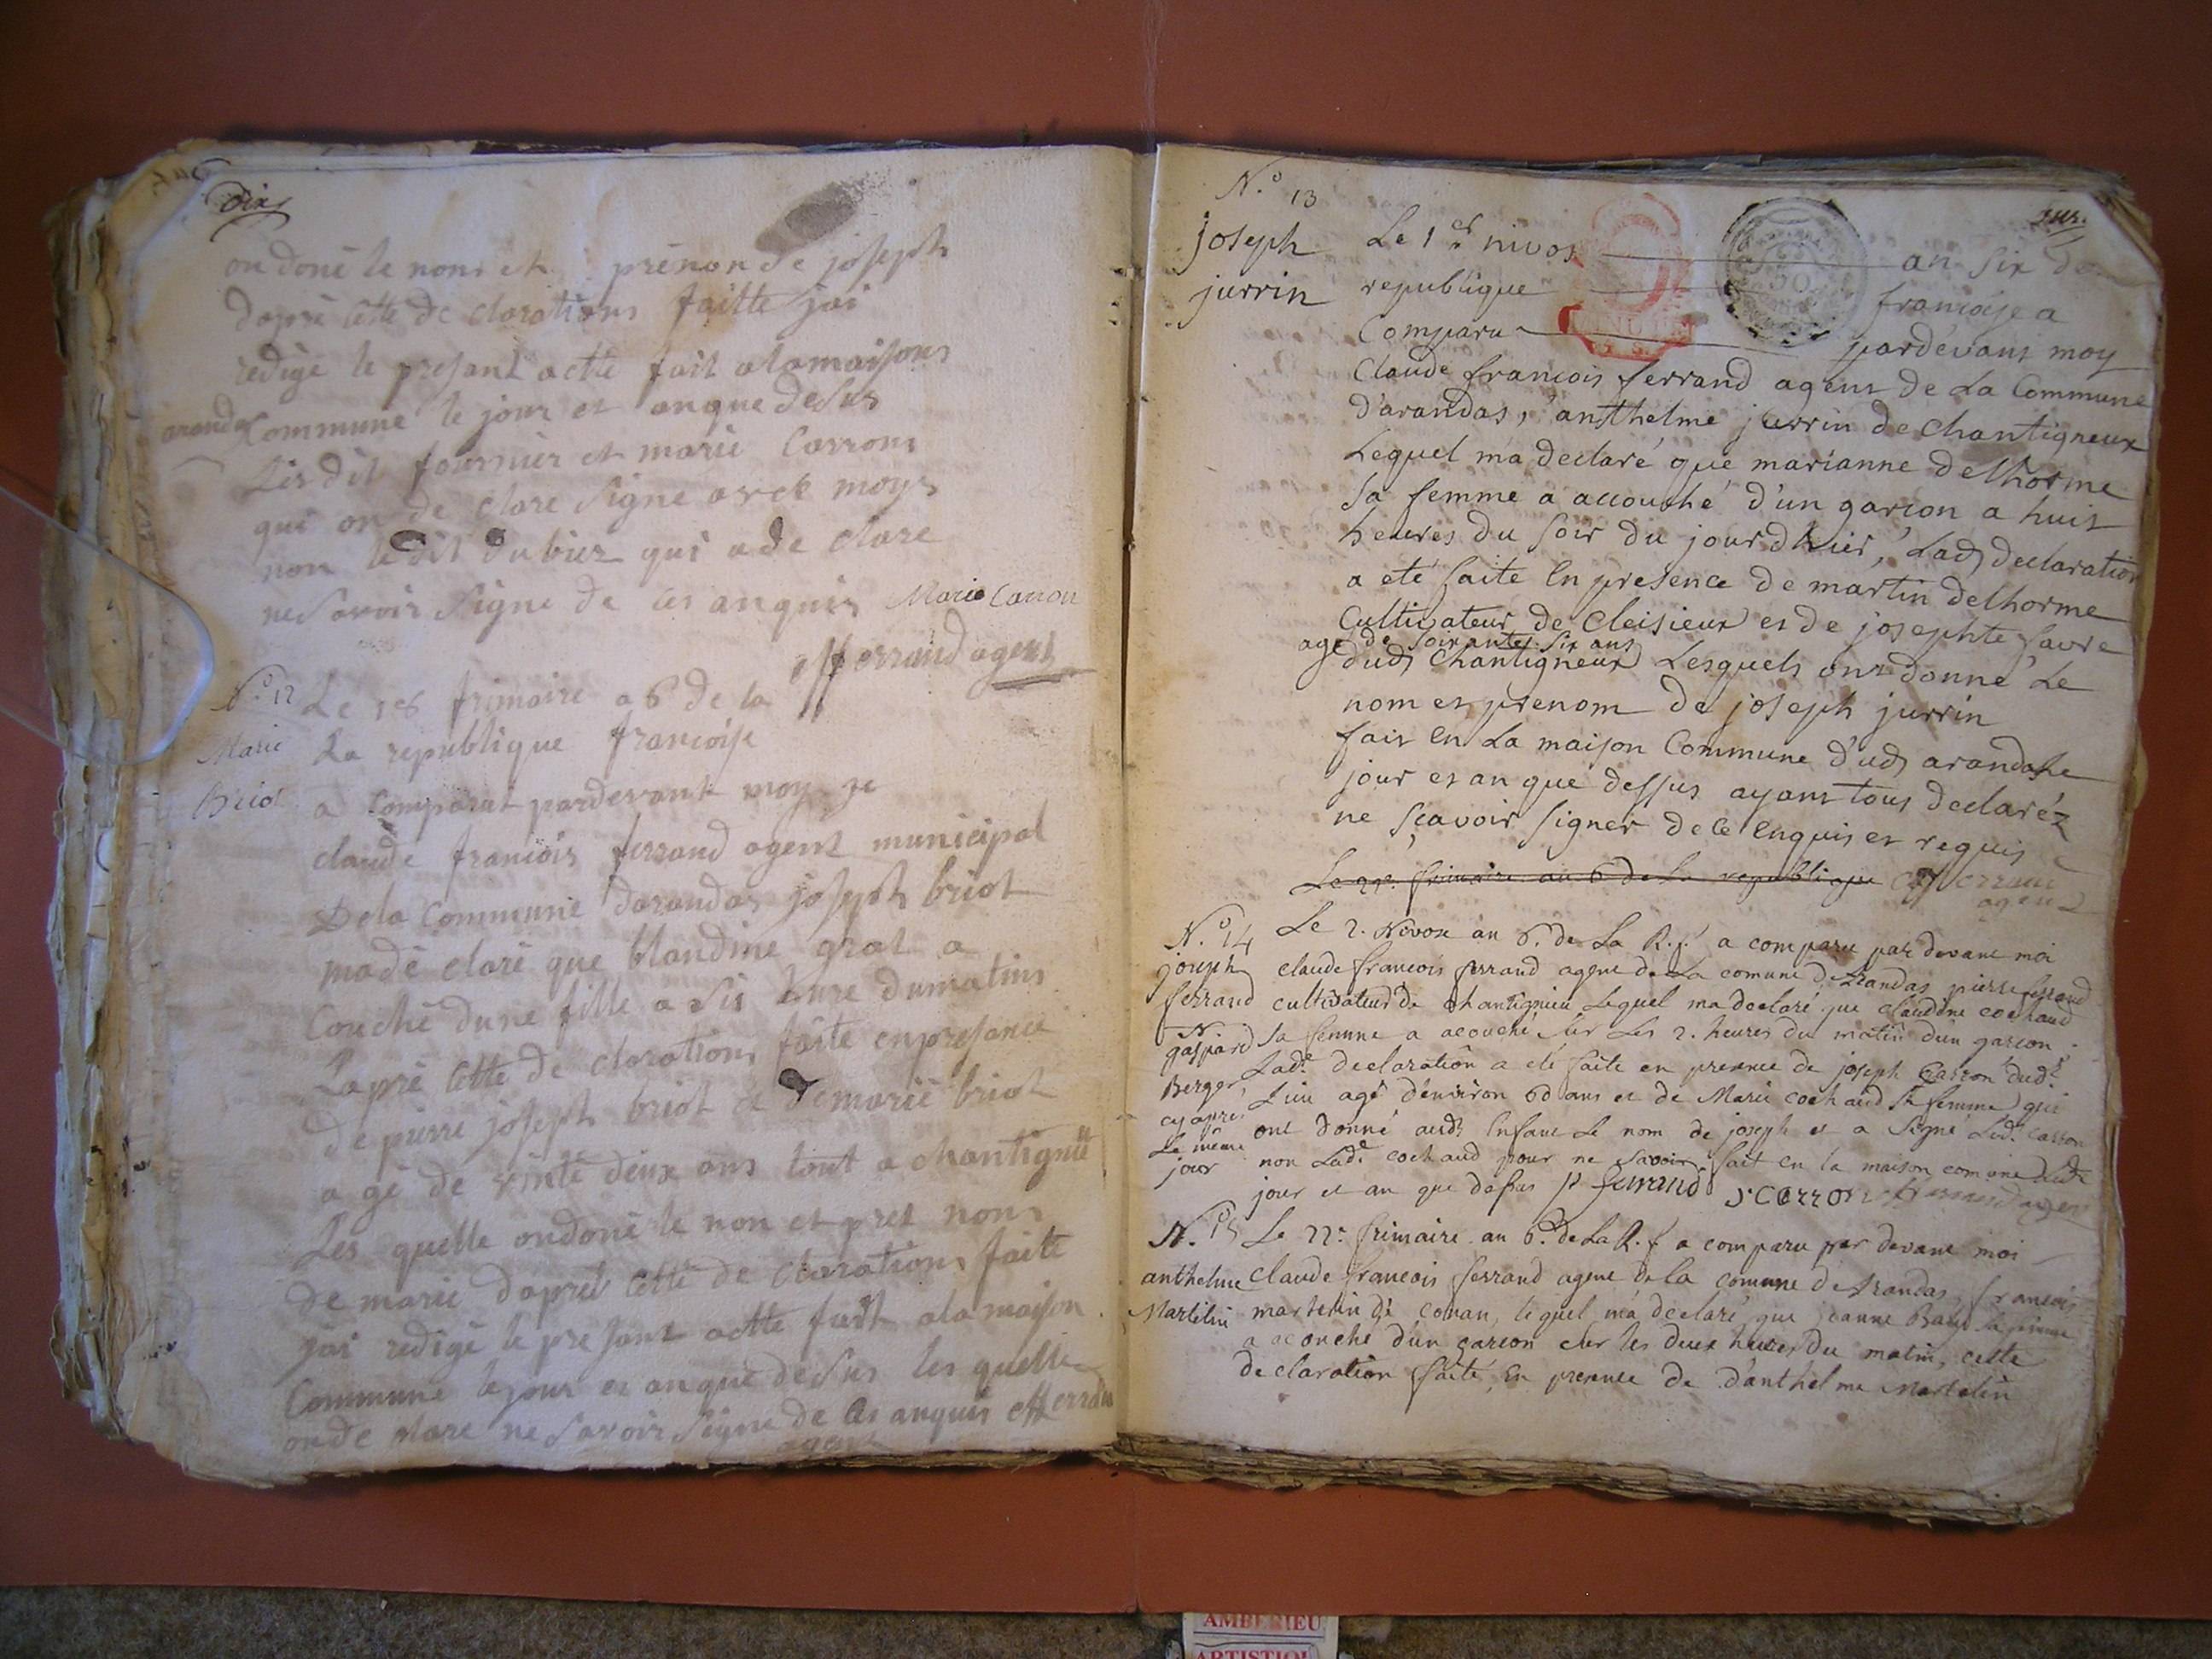 Dix
on donê le nom et prénon de joseph
daprè cette de clarations faitte jai
redigé le presant actte fait alamaisons
arandas Commune le jour et anque desus
Les dit fournier et marie Carrons
qui on de clare Signe avek moys
non le dit dubiez qui a de clare
ne Savoir Signe de ces anquis Marie Carron
cfferrand agent
N.o 12 Le 1er frimaire a 6 de la
Marie La republique francoise
Briot a Comparat pardevant moy je
claude francois ferrand agent municipal
De la Commune darandas joseph briot
madé claré que blandine grat a
Couché dune fille a Sis heure dumatins
Laprè Cette de clarations faite enpresance
de pierre joseph briot et de marie briot
a gé de vinte deux ans tout a chantignieu
Les quelle ondonè le non et pret nons
de marie daprès Cette de clarations faite
jai redigè le presant actte fait ala maison
Commune lejour et anque desus les quelle
onde clare ne Savoir Signe de Ces anquis cfferrand
agent
N.o 13
joseph Le 1er nivos an six de
jurrin republique francoise a
Comparu pardevant moy
Claude francois ferrand agent de La Commune
d'arandas, anthelme jurrin de Chantigneux
Lequel m'a declaré que marianne delhorme
Sa femme a accouché d'un garcon a huit
heures du soir du jour d'hier, Lad declaration
a eté faite En presence de martin delhorme
Cultivateur de Cleisieux et de josephte favre
agé de soixante Six ans
dud Chantigneux Lesquels ont donné Le
nom et prenom de joseph jurrin
fait En La maison Commune d'ud arandas Le
jour et an que dessus ayant tous declaréz
ne sçavoir signer de ce Enquis et requis
Le frimaire an 6 de La republique cfferrand
agent
N.o 14 Le 2. Nivose an 6.e de La R.f. a comparu par devant moi
joseph claude francois ferrand agent de La comune d'Arandas pierre ferrand
ferrand cultivateur de chantignieu Lequel ma declaré que claudine cochaud
N. sa femme a acouché sur Les 2. heures du matin d'un garcon
gaspard Lade declaration a eté faite en presence de joseph Carron dudt
Berger L'un agé d'environ 60 ans et de Marie cochaud sa femme qui
cy après ont donné audt Enfant Le nom de joseph et a signé Ledt Carron
Le même non Lade cochaud pour ne savoir fait en la maison comune
jour jour et an que desus p ferrand j Carron
N.o 15 Le 22e frimaire an 6.e de La R.f a comparu par devant moi
anthelme Claude francois ferrand agent de la comune de Arandas, francois
Martelin martelin de conan, lequel m'a declaré que jeanne Baud sa femme
a acouché d'un garcon sur les deux heures du matin, cette
declaration faite, En presence de d'anthelme martelin
AMBERIEU
ARTISTIQU